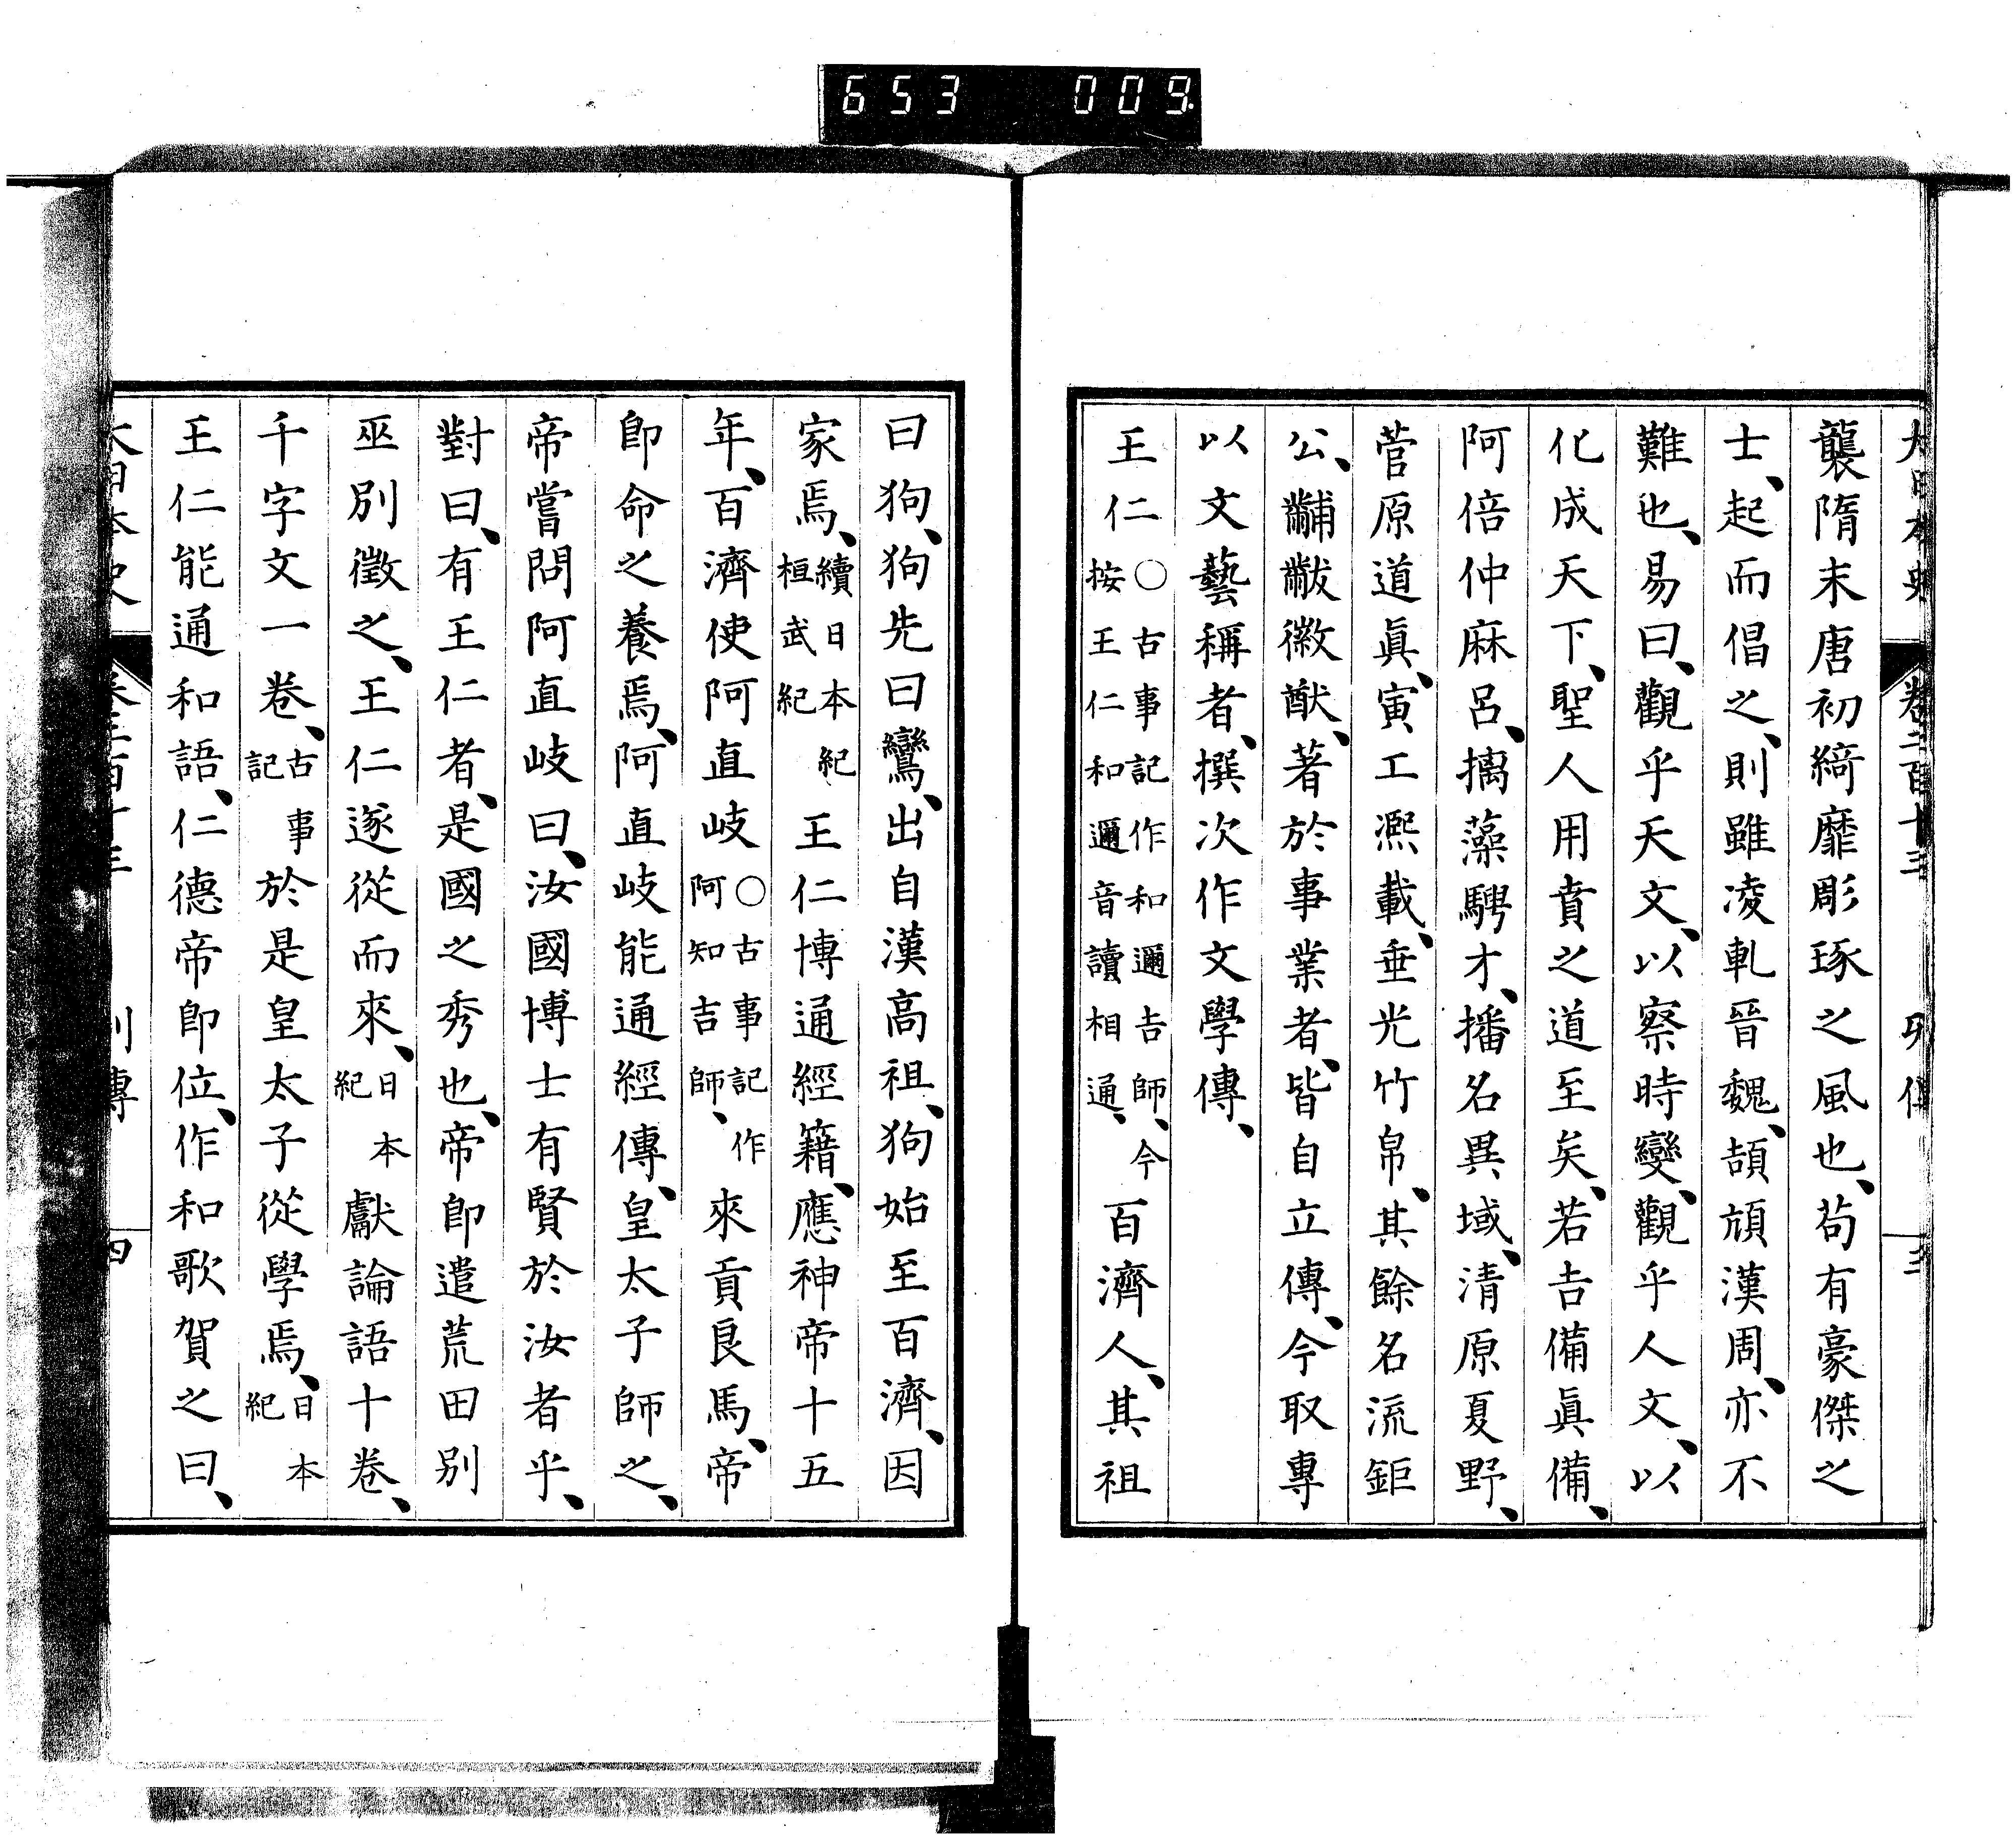 653 009
大日本史 卷二百十三 列傳 三
襲隋末唐初綺靡彫琢之風也、苟有豪傑之
士、起而倡之、則雖凌軋晉魏、頡頏漢周、亦不
難也、易曰、觀乎天文、以察時變、觀乎人文、以
化成天下、聖人用賁之道至矣、若吉備眞備、
阿倍仲麻呂、摛藻騁才、播名異域、清原夏野、
菅原道眞、寅工熈載、垂光竹帛、其餘名流鉅
公、黼黻徽猷、著於事業者、皆自立傳、今取專
以文藝稱者、撰次作文學傳、
王仁○古事記作和邇吉師、今按王仁和邇音讀相通、百濟人、其祖
曰狗、狗先曰鸞、出自漢高祖、狗始至百濟、因
家焉、續日本紀桓武紀王仁博通經籍、應神帝十五
年、百濟使阿直岐○古事記作阿知吉師、來貢良馬、帝
卽命之養焉、阿直岐能通經傳、皇太子師之、
帝嘗問阿直岐曰、汝國博士有賢於汝者乎、
對曰、有王仁者、是國之秀也、帝卽遣荒田別
巫別徵之、王仁遂從而來、日本紀獻論語十卷、
千字文一卷、古事記於是皇太子從學焉、日本紀
王仁能通和語、仁德帝卽位、作和歌賀之曰、
大日本史 卷二百十三 列傳 四